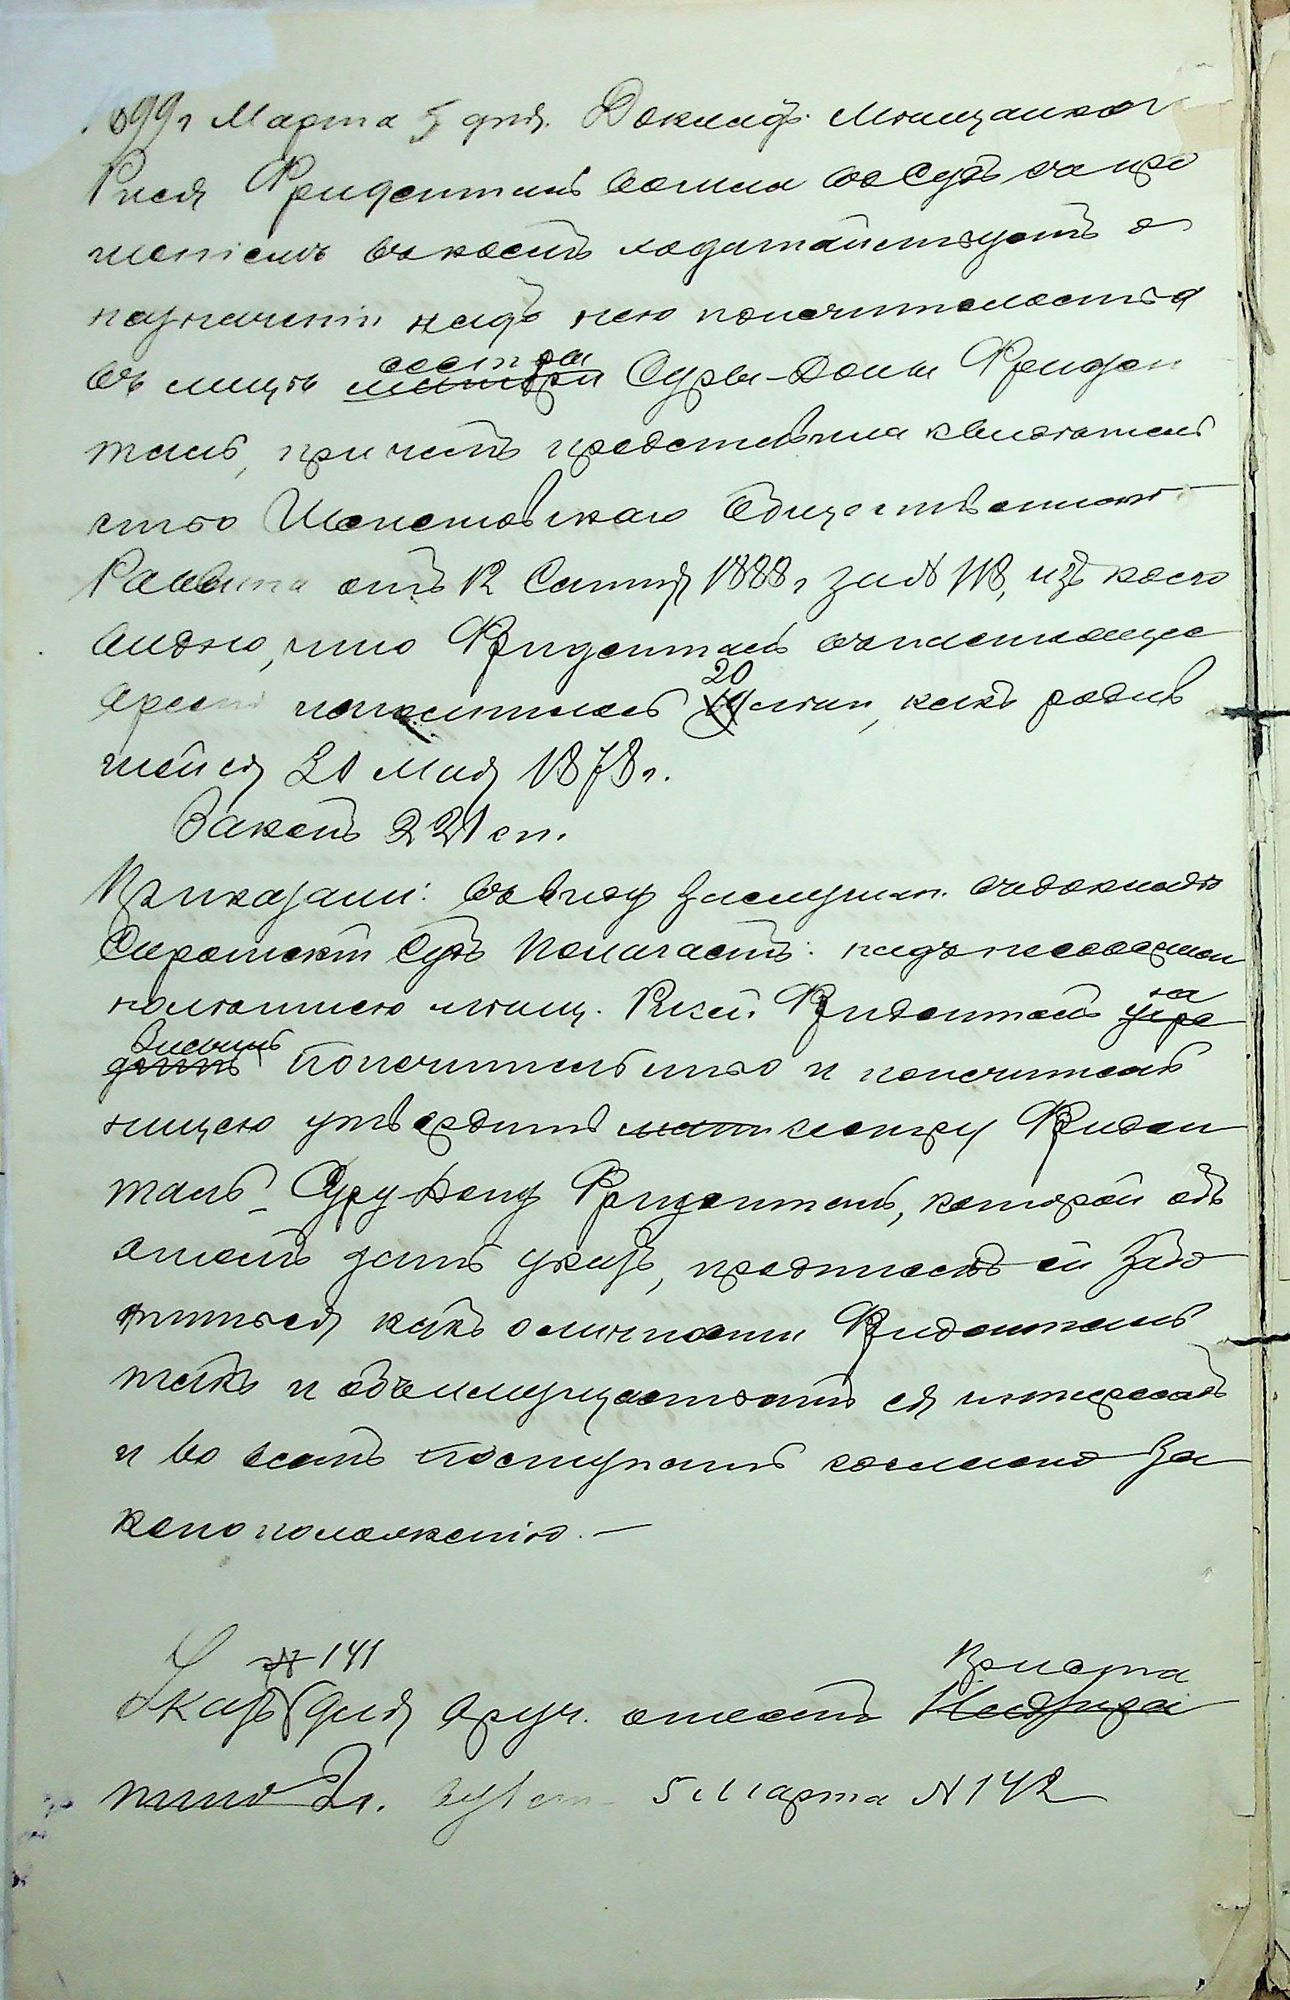 1899 г Марта 5 дня. Докладъ. Мѣщанка
Рися Фриденталь вошла въ Судъ съ про
шеніемъ въ коемъ ходатайствуетъ о
назначеніи надъ нею попечительства
въ лицѣ матери сестры Суры-Доны Фриден
таль, при чемъ представила свидѣтель
ство Общественнаго
Раввина отъ 12 Сентяб 1888 г за № 118, изъ коего
видно, что Фриденталь въ настоящее
время 20 лѣтъ, какъ родив
шейся 21 Мая 1878 г.
Законъ 221 ст.
Приказали: Въ виду заслушан. въ докладѣ
Сиротскій Судъ Полагаетъ: надъ несовершен
нолѣтнею мѣщ. Рисей Фриденталь учре
дить попечительство и попечитель
ницею утвердить мать сестру Фриден
таль Суру-Дону Фриденталь, которой объ
этомъ дать указъ, предписавъ ей забо
титься какъ о личности Фриденталь
такъ и объ имущественныхъ ея интересахъ
и во всемъ поступать согласно за
коноположенію. —
Указъ № 141 для вруч. отосл. Пристава
2 г. 5 Марта № 142